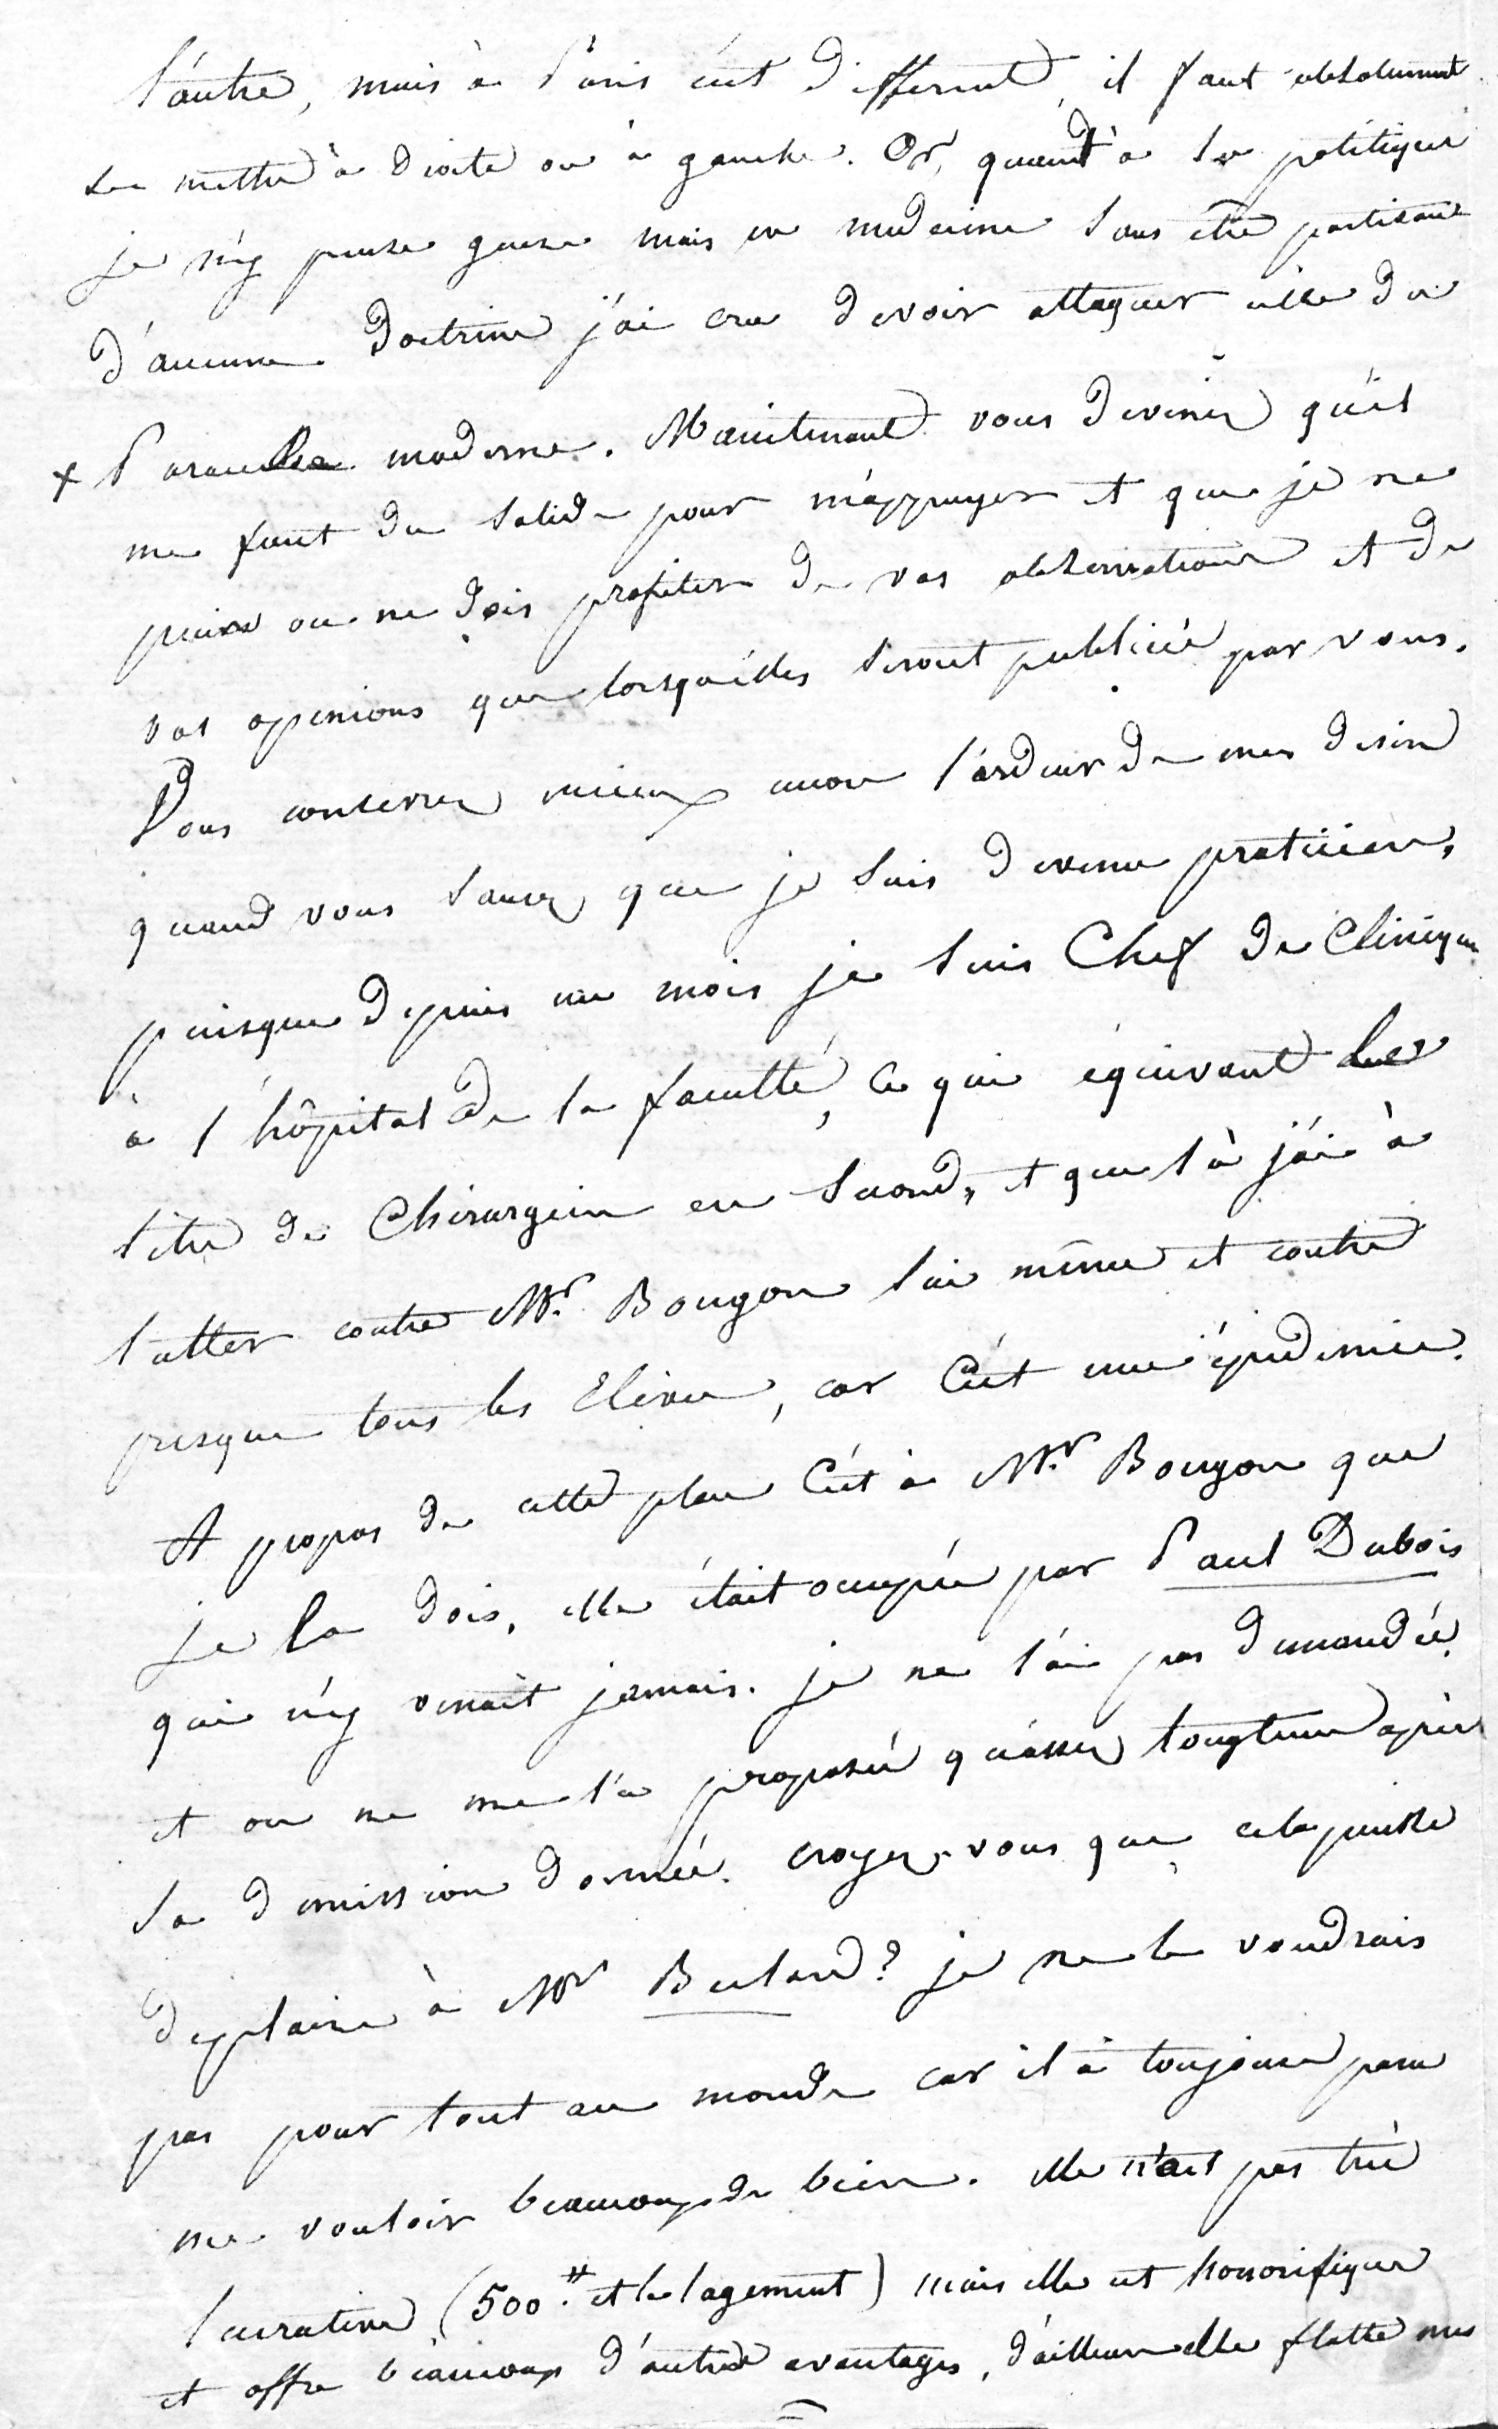 l'autre, mais à Paris c'est different, il faut absolument
se mettre à droite ou à gauche. Or, quand à la politique
je n'y pense guere mais en medecine sans être partisant
d'aucune doctrine j'ai cru devoir attaquer celle du
+ Paracelse moderne. Maintenant vous devinez qu'il
me faut du solide pour m'appuyer et que je ne
puis ou ne dois profiter de vos observations et de
vos opinions que lorsqu'elles seront publiées par vous.
Vous concevrez mieux encore l'ardeur de mes desirs
quand vous saurez que je suis devenu praticien,
puisque depuis un mois je suis Chef de Clinique
à l'hôpital de la faculté, ce qui équivaut au
titre de Chirurgien en second, et que là j'ai à
lutter contre Mr. Bougon lui même et contre
presque tous les Eleves, car C'est une épidemie.
A propos de cette place C'est à Mr. Bougon que
je la dois, elle était occupée par Paul Dubois
qui n'y venait jamais. je ne l'ai pas demandée
et on ne me l'a proposée qu'assez longtems après
sa demission donnée. croyez-vous que cela puisse
deplaire à Mr Beclard? je ne le voudrais
pas pour tout au monde car il a toujours paru
me vouloir beaucoup de bien. elle n'est pas très
lucrative (500# et le logement) mais elle est honorifique
et offre beaucoup d'autres avantages, d'ailleurs elle flatte mes